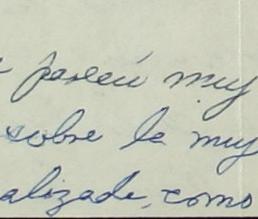 pareció muy
sobre la muy
alizada, como